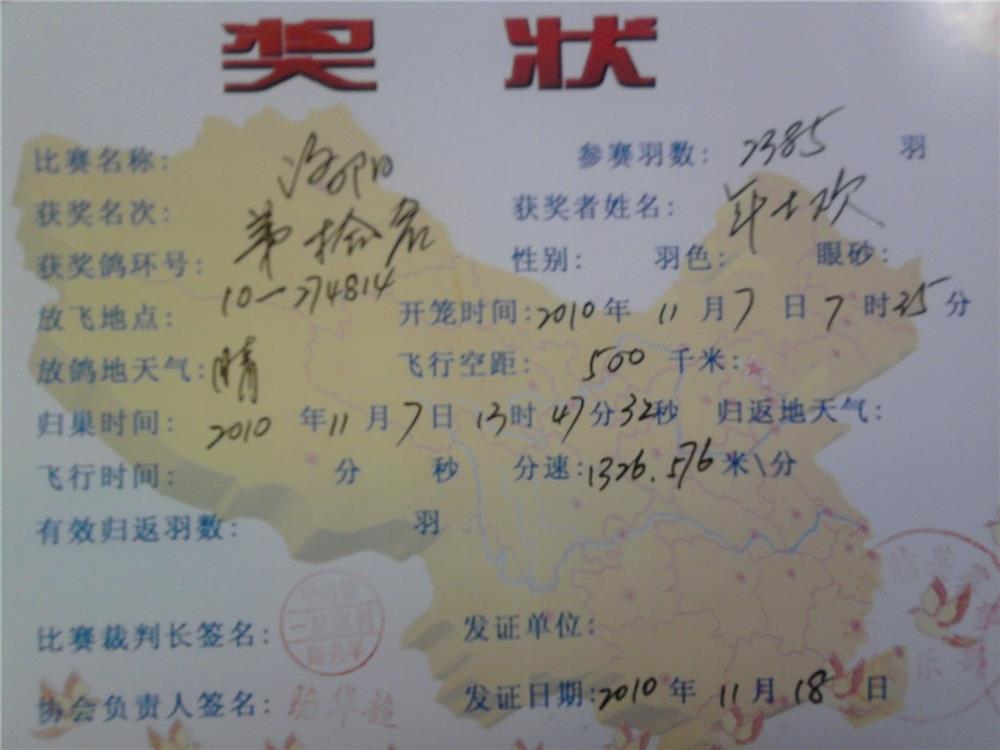 奖 状
比赛名称: 洛阳 参赛羽数: 2385 羽
获奖名次: 第拾名 获奖者姓名:
获奖鸽环号: 10-274814 性别: 羽色: 眼砂:
放飞地点: 开笼时间:2010年 11月7日7时25分
放鸽地天气:晴 飞行空距: 500 千米:
归巢时间: 2010年11月7日13时47分32秒 归返地天气:
飞行时间: 分 秒 分速:1326.576米\分
有效归返羽数: 羽
比赛裁判长签名: 发证单位:
协会负责人签名: 骆华超 发证日期:2010年 11月18日